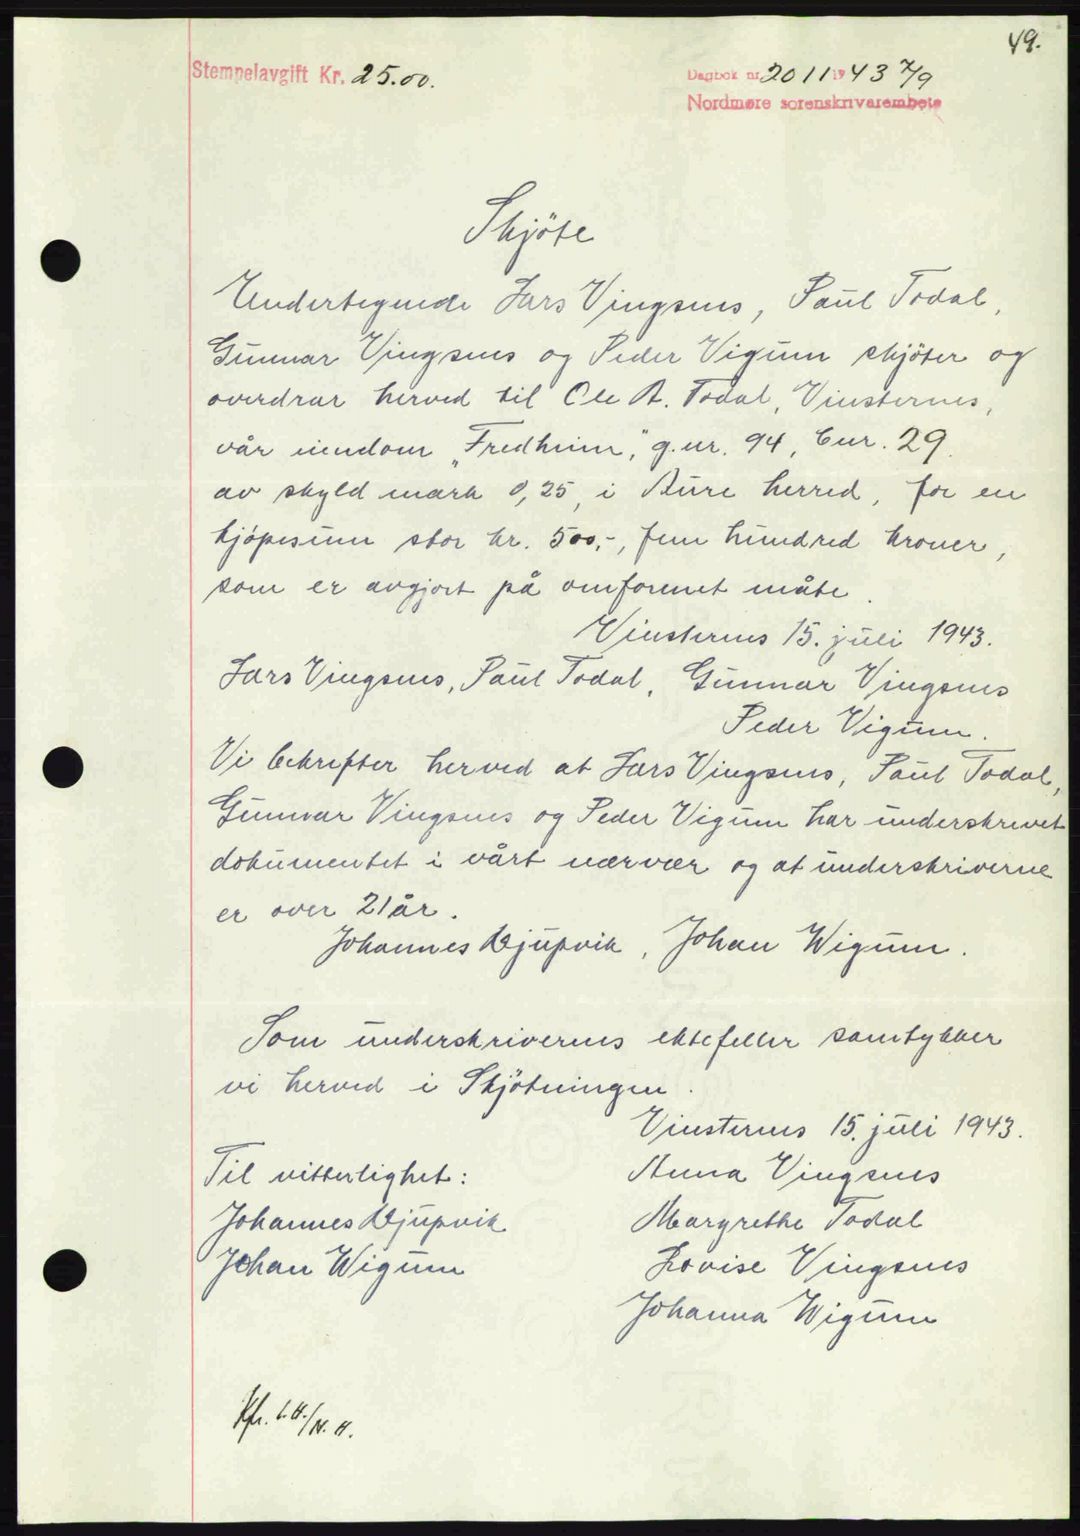 49.
Stempelavgift Kr. 25.00.
Dagbok nr. 2011 1943 7/9
Nordmøre sorenskrivarembete
Skjöte
Undertegnede Lars Vingsnes, Paul Todal,
Gunnar Vingsnes og Peder Vigum skjöter og
overdrar herved til Ole A. Todal, Vinsternes,
vår eiendom „Fredheim”, g.nr. 94, bnr. 29
av skyld mark 0,25, i Aure herred, for en
kjöpesum stor kr. 500,-, fem hundred kroner,
som er avgjort på omforenet måte.
Vinsternes 15. juli 1943.
Lars Vingsnes, Paul Todal, Gunnar Vingsnes
Peder Vigum.
Vi bekrefter herved at Lars Vingsnes, Paul Todal,
Gunnar Vingsnes og Peder Vigum har underskrevet
dokumentet i vårt nærvær og at underskriverne
er over 21 år.
Johannes Djupvik, Johan Wigum.
Som underskrivernes ektefeller samtykker
vi herved i Skjötningen.
Vinsternes 15. juli 1943.
Til vitterlighet:
Anna Vingsnes
Johannes Djupvik
Margrethe Todal
Johan Wigum
Lovise Vingsnes
Johanna Wigum
Kfr. L.H./N.H.